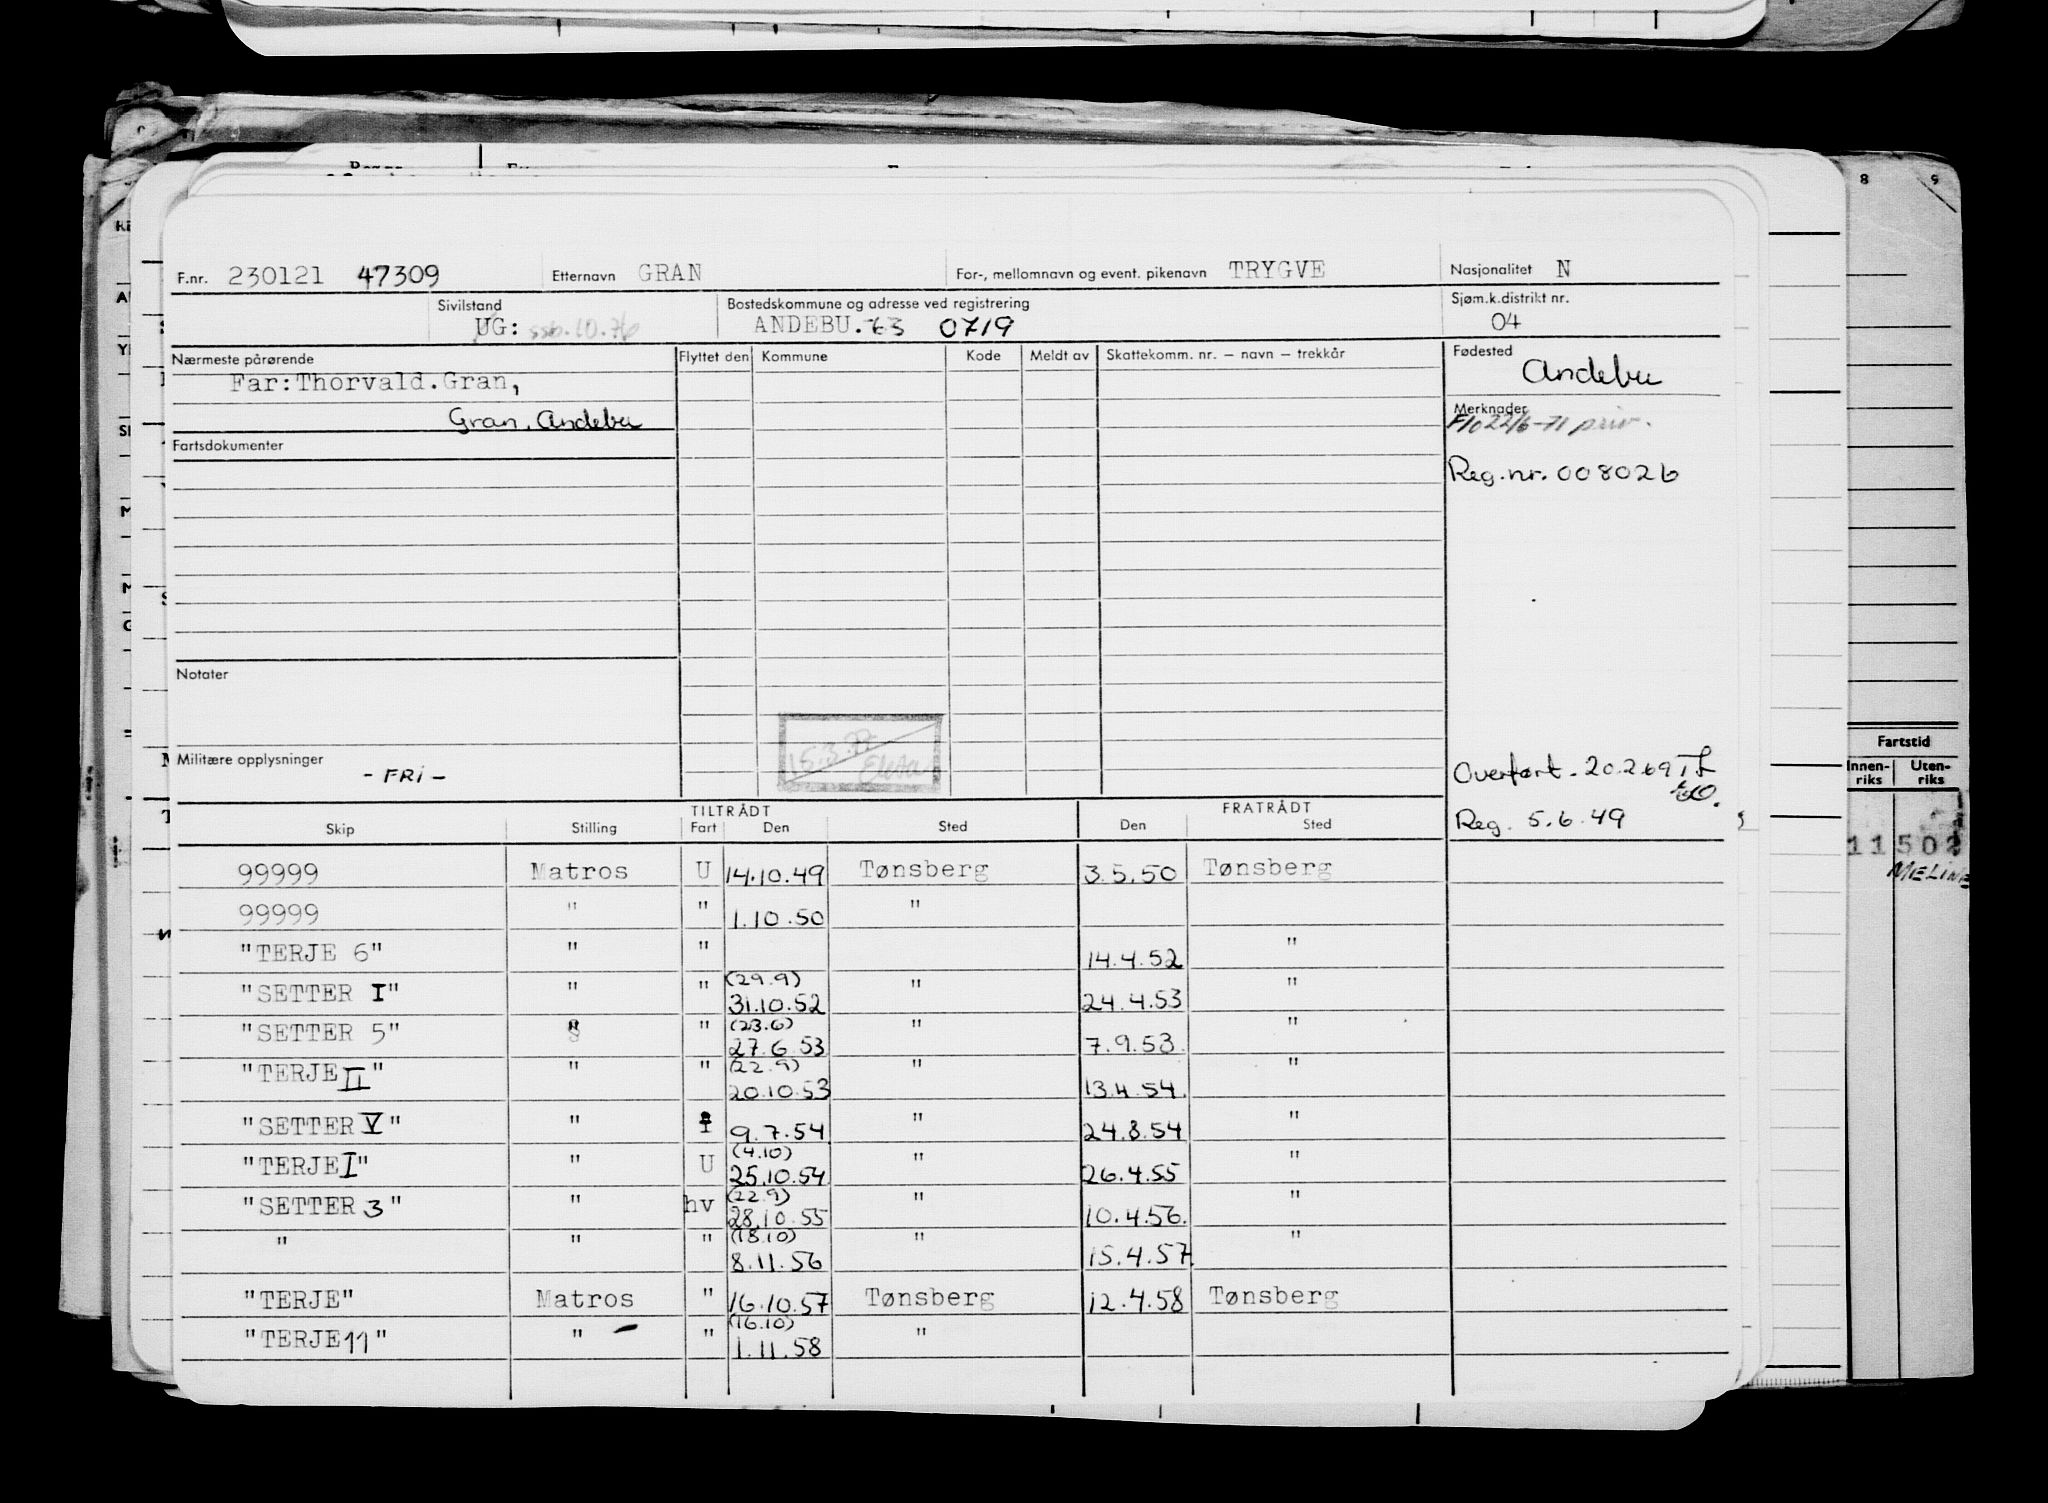 F.nr. 230121 47309 Etternavn GRAN For-, mellomnavn og event. pikenavn TRYGVE Nasjonalitet N
Sivilstand Bostedskommune og adresse ved registrering Sjøm.k.distrikt nr.
UG: ssb.10.76 ANDEBU.73 0719 04
Nærmeste pårørende Flyttet den Kommune Kode Meldt av Skattekomm. nr. – navn – trekkår Fødested
Far:Thorvald.Gran, Andebu
Gran, Andebu Merknader
F/o 22/6-71 priv.
Fartsdokumenter
Reg.nr. 008026
Notater
15.3.77
Militære opplysninger - FRi -
Overført. 20.2.69
Reg. 5.6.49
Fartstid
Innen-riks Uten-riks
11502
MELINE
TILTRÅDT FRATRÅDT
Skip Stilling Fart Den Sted Den Sted
99999 Matros U 14.10.49 Tønsberg 3.5.50 Tønsberg
99999 " " 1.10.50 "
"TERJE 6" " " 14.4.52 "
"SETTER I" " " (29.9) 31.10.52 " 24.4.53 "
"SETTER 5" " " (23.6) 27.6 53 " 7.9.53. "
"TERJE II" " " (22.9) 20.10.53 " 13.4.54. "
"SETTER V" " 9.7.54 " 24.8.54 "
"TERJE I" " U (4.10) 25.10.54 " 26.4.55 "
"SETTER 3" " hv (22.9) 28.10.55 " 10.4.56. "
" " " (18.10) 8.11.56 " 15.4.57. "
"TERJE" Matros " 16.10.57 Tønsberg 12.4.58 Tønsberg
"TERJE 11" " " (16.10) 1.11.58 "